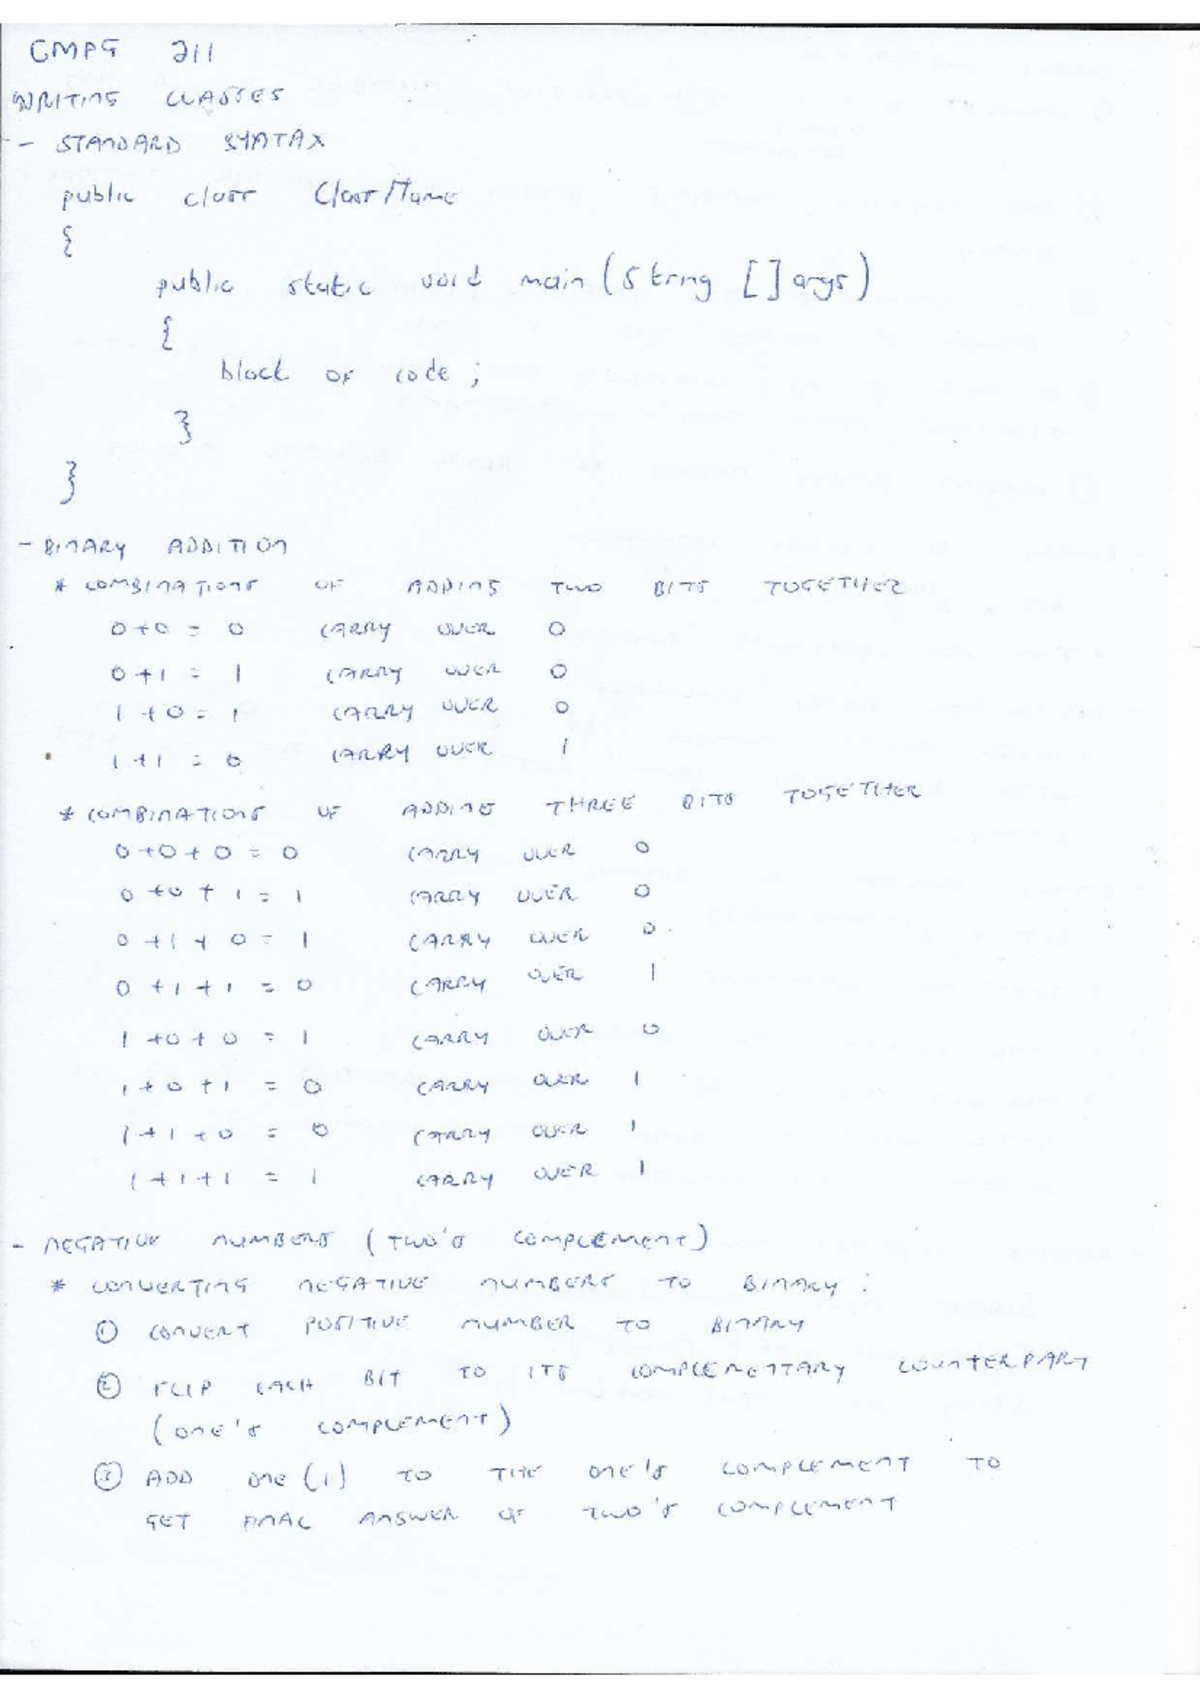 CMPG 211
WRITING CLASSES
- STANDARD SYNTAX
public class ClassName
{
public static void main (String [] args)
{
block of code ;
}
}
- BINARY ADDITION
* COMBINATIONS OF ADDING TWO BITS TOGETHER
0+0 = 0 CARRY OVER 0
0+1 = 1 CARRY OVER 0
1+0 = 1 CARRY OVER 0
1+1 = 0 CARRY OVER 1
* COMBINATIONS OF ADDING THREE BITS TOGETHER
0+0+0 = 0 CARRY OVER 0
0+0+1 = 1 CARRY OVER 0
0+1+0 = 1 CARRY OVER 0
0+1+1 = 0 CARRY OVER 1
1+0+0 = 1 CARRY OVER 0
1+0+1 = 0 CARRY OVER 1
1+1+0 = 0 CARRY OVER 1
1+1+1 = 1 CARRY OVER 1
- NEGATIVE NUMBERS (TWO'S COMPLEMENT)
* CONVERTING NEGATIVE NUMBERS TO BINARY :
① CONVERT POSITIVE NUMBER TO BINARY
② FLIP EACH BIT TO ITS COMPLEMENTARY COUNTERPART
(ONE'S COMPLEMENT)
③ ADD ONE (1) TO THE ONE'S COMPLEMENT TO
GET FINAL ANSWER OF TWO'S COMPLEMENT